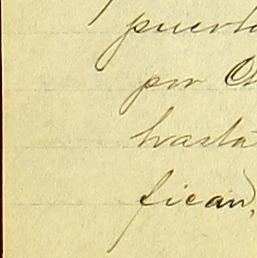 puerto
por
hasta
fican,